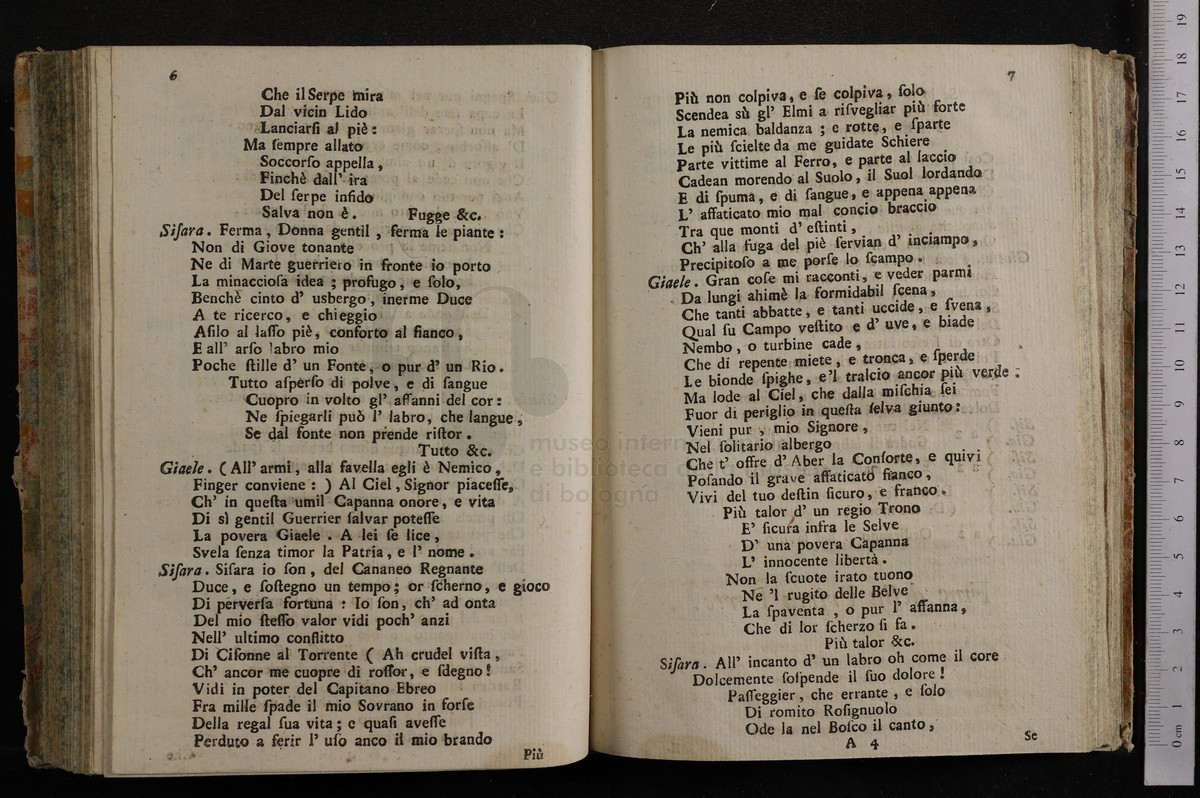 6
Che il Serpe mira
Dal vicin Lido
Lanciarſi al piè:
Ma ſempre allato
Soccorſo appella,
Finchè dall' ira
Del ſerpe infido
Salva non è. Fugge &c.
Siſara. Ferma, Donna gentil, ferma le piante:
Non di Giove tonante
Ne di Marte guerriero in fronte io porto
La minaccioſa idea; profugo, e ſolo,
Benchè cinto d' usbergo, inerme Duce
A te ricerco, e chieggio
Aſilo al laſſo piè, conforto al fianco,
E all' arſo labro mio
Poche ſtille d' un Fonte, o pur d' un Rio.
Tutto aſperſo di polve, e di ſangue
Cuopro in volto gl' affanni del cor:
Ne ſpiegarli può l' labro, che langue,
Se dal fonte non prende riſtor.
Tutto &c.
Giaele. (All' armi, alla favella egli è Nemico,
Finger conviene: ) Al Ciel, Signor piaceſſe,
Ch' in queſta umil Capanna onore, e vita
Di sì gentil Guerrier ſalvar poteſſe
La povera Giaele. A lei ſe lice,
Svela ſenza timor la Patria, e l' nome.
Siſara. Siſara io ſon, del Cananeo Regnante
Duce, e ſoſtegno un tempo; or ſcherno, e gioco
Di perverſa fortuna: Io ſon, ch' ad onta
Del mio ſteſſo valor vidi poch' anzi
Nell' ultimo conflitto
Di Ciſonne al Torrente ( Ah crudel viſta,
Ch' ancor me cuopre di roſſor, e ſdegno!
Vidi in poter del Capitano Ebreo
Fra mille ſpade il mio Sovrano in forſe
Della regal ſua vita; e quaſi aveſſe
Perduto a ferir l' uſo anco il mio brando
Più
7
Più non colpiva, e ſe colpiva, ſolo
Scendea sù gl' Elmi a riſvegliar più forte
La nemica baldanza; e rotte, e ſparte
Le più ſcielte da me guidate Schiere
Parte vittime al Ferro, e parte al laccio
Cadean morendo al Suolo, il Suol lordando
E di ſpuma, e di ſangue, e appena appena
L' affaticato mio mal concio braccio
Tra que monti d' eſtinti,
Ch' alla fuga del piè ſervian d' inciampo,
Precipitoſo a me porſe lo ſcampo.
Giaele. Gran coſe mi racconti, e veder parmi
Da lungi ahimè la formidabil ſcena,
Che tanti abbatte, e tanti uccide, e ſvena,
Qual ſu Campo veſtito e d' uve, e biade
Nembo, o turbine cade,
Che di repente miete, e tronca, e ſperde
Le bionde ſpighe, e'l tralcio ancor più verde:
Ma lode al Ciel, che dalla miſchia ſei
Fuor di periglio in queſta ſelva giunto:
Vieni pur, mio Signore,
Nel ſolitario albergo
Che t' offre d' Aber la Conſorte, e quivi
Poſando il grave affaticato fianco,
Vivi del tuo deſtin ſicuro, e franco.
Più talor d' un regio Trono
E' ſicura infra le Selve
D' una povera Capanna
L' innocente libertà.
Non la ſcuote irato tuono
Ne 'l rugito delle Belve
La ſpaventa, o pur l' affanna,
Che di lor ſcherzo ſi fa.
Più talor &c.
Siſara. All' incanto d' un labro oh come il core
Dolcemente ſoſpende il ſuo dolore!
Paſſeggier, che errante, e ſolo
Di romito Roſignuolo
Ode la nel Boſco il canto,
A 4
Se
museo intern
e biblioteca d
di bologna
0 cm 1 2 3 4 5 6 7 8 9 10 11 12 13 14 15 16 17 18 19